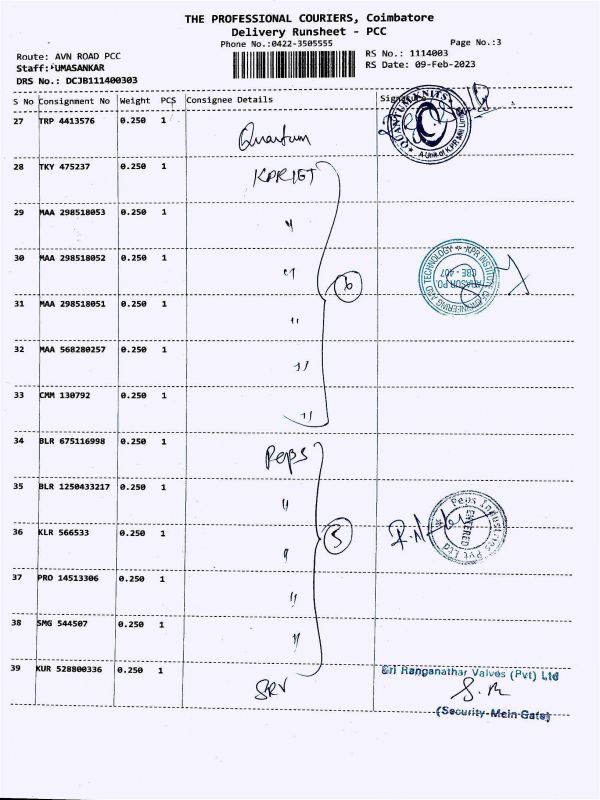 THE PROFESSIONAL COURIERS, Coimbatore
Delivery Runsheet - PCC
Phone No.:0422-3505555
Page No.:3
Route: AVN ROAD PCC
RS No.: 1114003
Staff: UMASANKAR
RS Date: 09-Feb-2023
DRS No.: DCJB111400303
S No Consignment No Weight PCS Consignee Details
27 TRP 4413576 0.250 1 Quantum
QUANTUM KNITS
A Unit of K.P.R. Mill Limited
28 TKY 475237 0.250 1 KPRIET
29 MAA 298518053 0.250 1 "
30 MAA 298518052 0.250 1 "
6
KPR INSTITUTE OF ENGINEERING AND TECHNOLOGY
ARASUR PO
CBE - 407
31 MAA 298518051 0.250 1 "
32 MAA 568280257 0.250 1 "
33 CMM 130792 0.250 1 "
34 BLR 675116998 0.250 1 Peps
35 BLR 1250433217 0.250 1 "
36 KLR 566533 0.250 1 "
5
Peps Industries Pvt Ltd
ENTERED
37 PRO 14513306 0.250 1 "
38 SMG 544507 0.250 1 "
39 KUR 528800336 0.250 1 SRV
Sri Ranganathar Valves (Pvt) Ltd
(Security-Mein Gate)